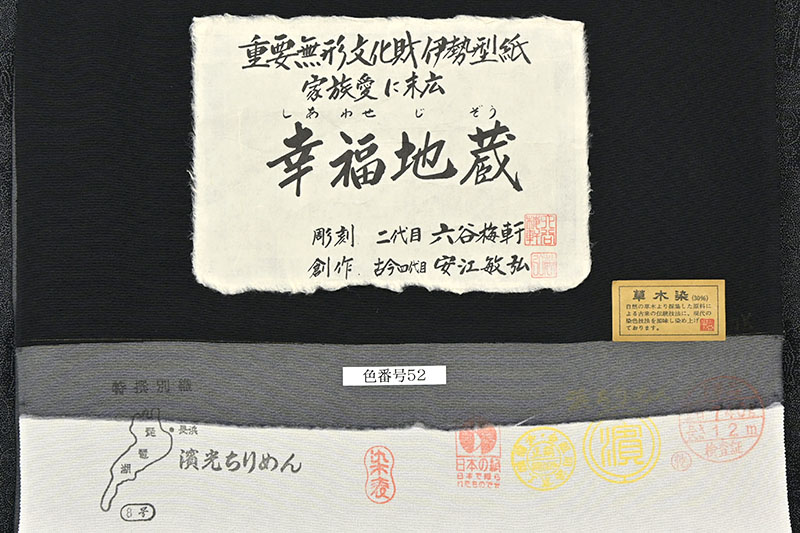 重要無形文化財伊勢型紙
家族愛に末広
しあわせ じぞう
幸福地蔵
彫刻 二代目 六谷梅軒
創作 古今四代目 安江敏弘
草木染(30%)
自然の草木より採集した原料に
よる古来の伝統技法に、現代の
染色技法を加味し染め上げ
ております。
色番号52
特撰別織
琵琶湖
長浜
濱光ちりめん
8号
日本の絹
日本で織ら
れたものです
濱
12m
検査証